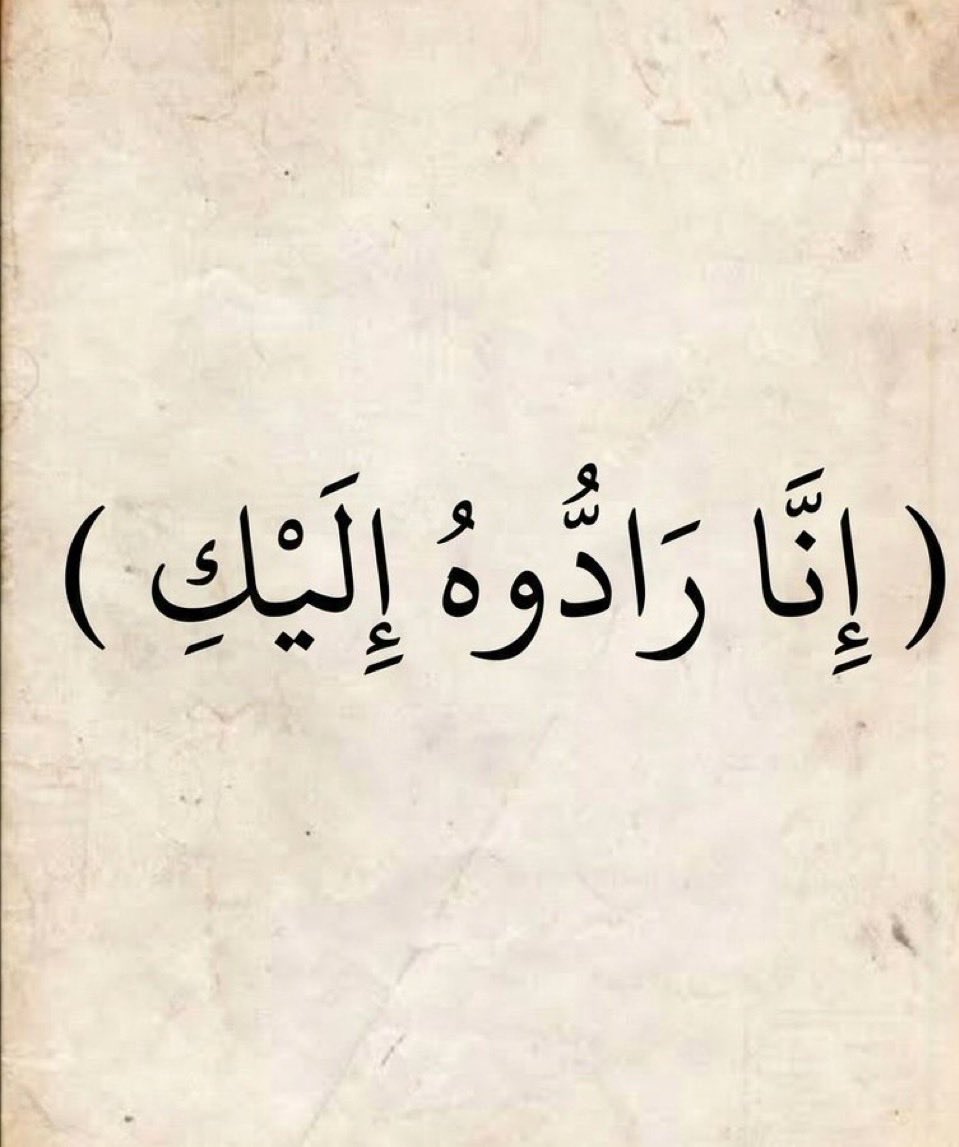 ( إِنَّا رَادُّوهُ إِلَيْكِ )